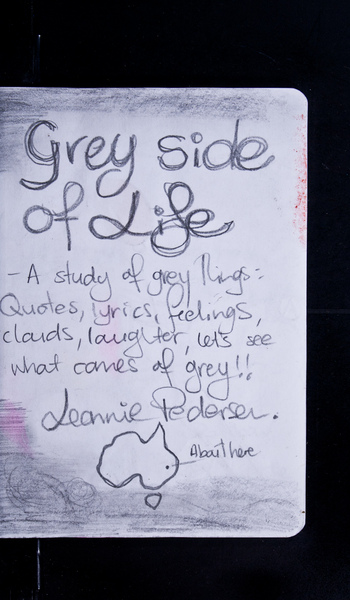 Grey side
of Life
- A study of grey things:
Quotes, lyrics, feelings,
clouds, laughter, let's see
what comes of grey!!
Leannie Pedersen.
About here